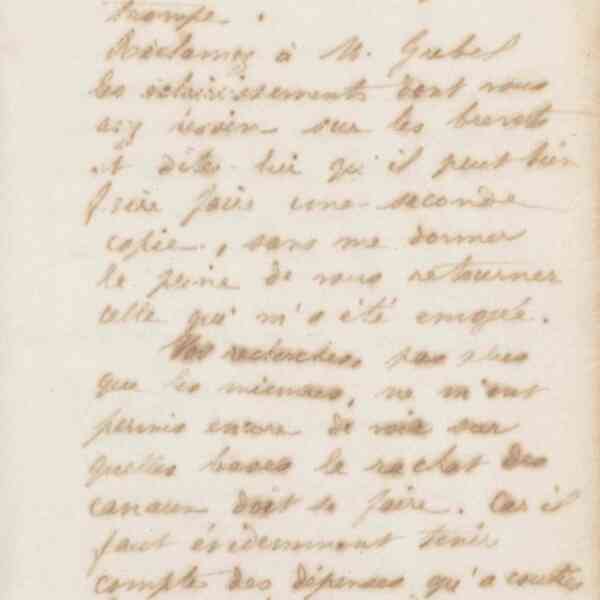 trompe.
Réclamez à M. Grebel
les éclaircissements dont vous
avez besoin sur les brevets
et dites-lui qu'il peut bien
faire faire une seconde
copie, sans me donner
la peine de vous retourner
celle qui m'a été envoyée.
Vos recherches, pas plus
que les miennes, ne m'ont
permis encore de voir sur
quelles bases le rachat des
canaux doit se faire. Car il
faut évidemment tenir
comptes des dépenses qu'a coutées